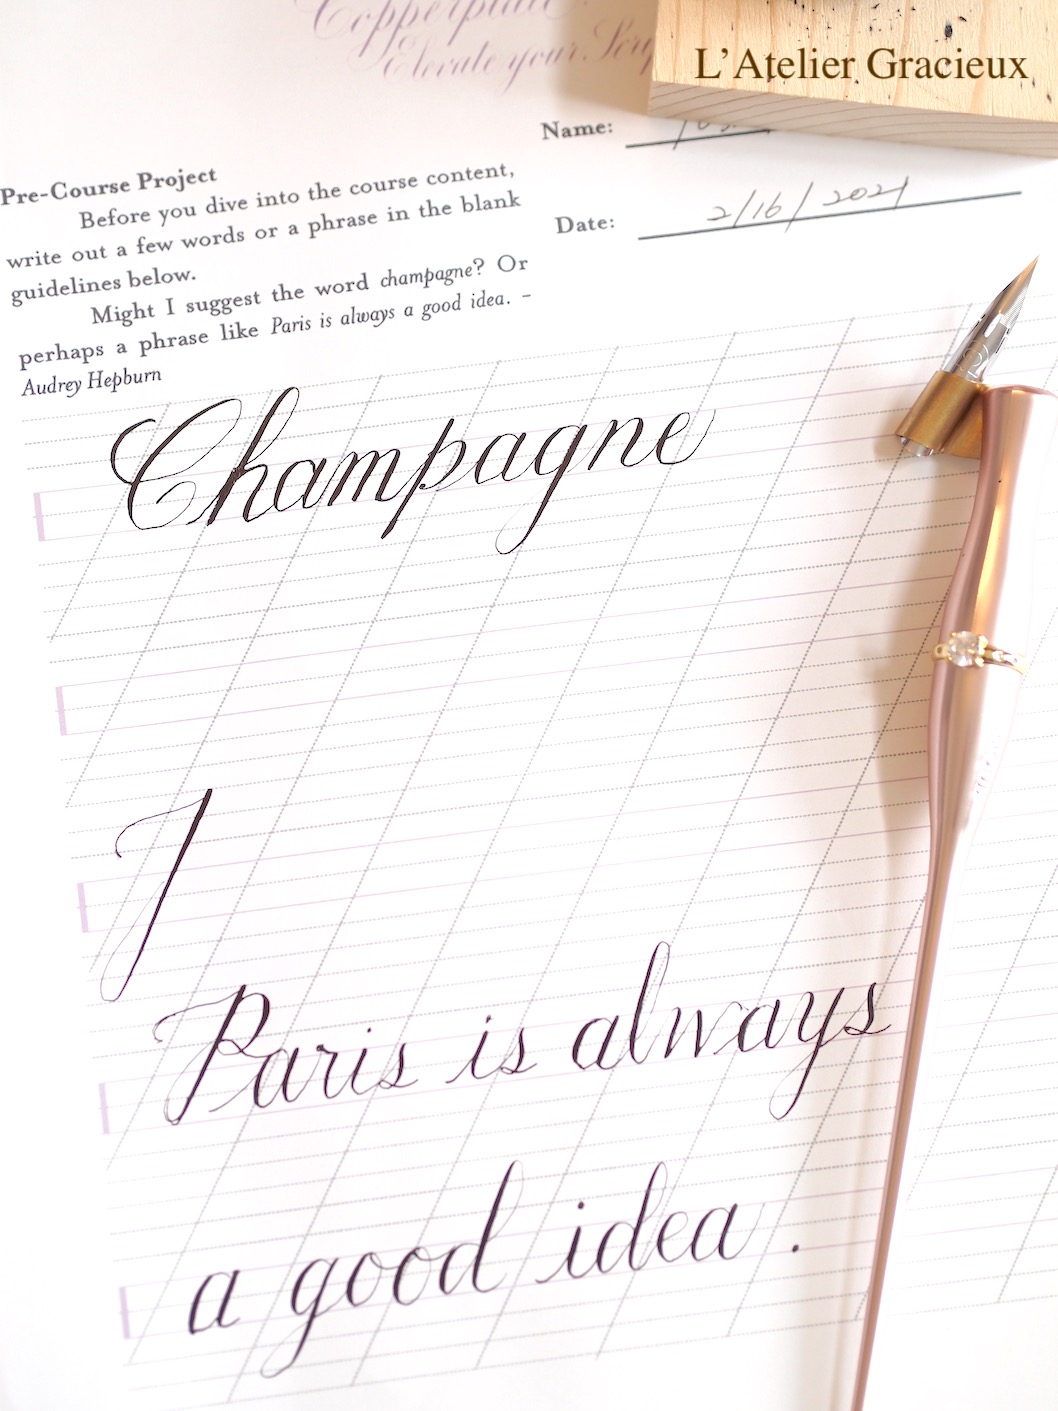 Copperplate
Elevate your
L'Atelier Gracieux
Name:
Date: 2/16/2021
Pre-Course Project
Before you dive into the course content,
write out a few words or a phrase in the blank
guidelines below.
Might I suggest the word champagne? Or
perhaps a phrase like Paris is always a good idea. –
Audrey Hepburn
Champagne
J
Paris is always
a good idea.